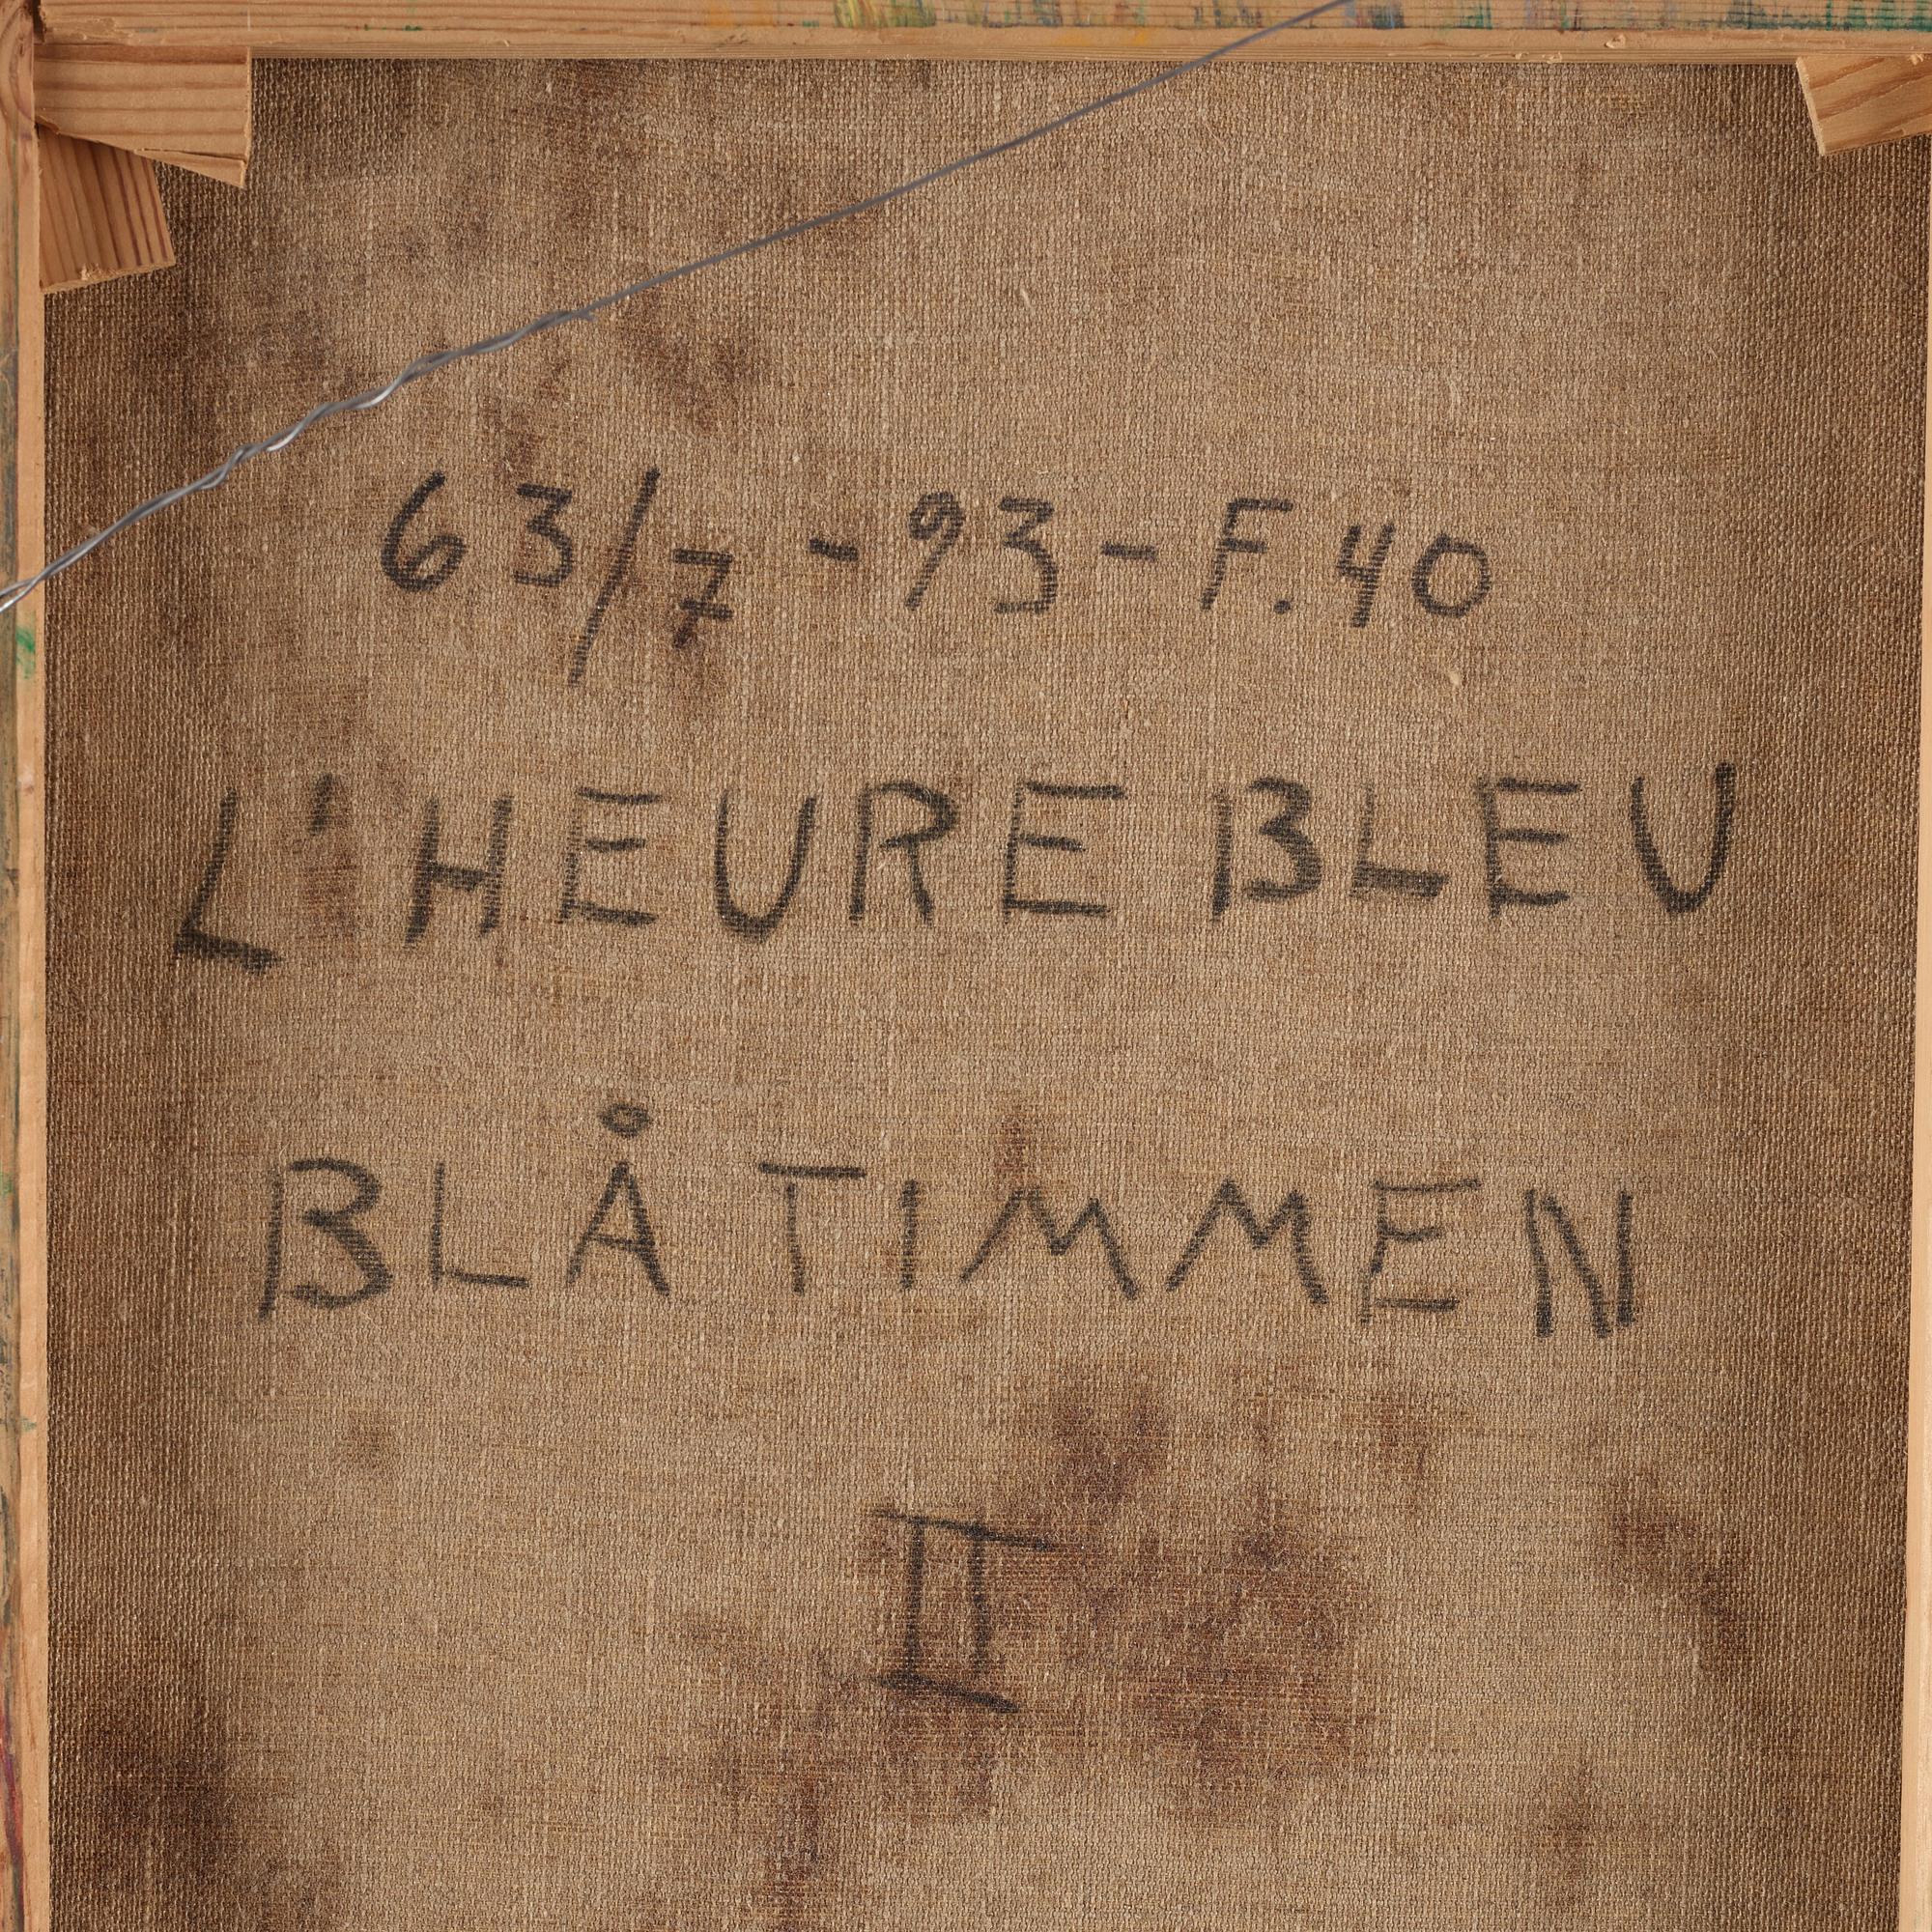 63/7 - 93 - F.40
L'HEURE BLEU
BLÅTIMMEN
II